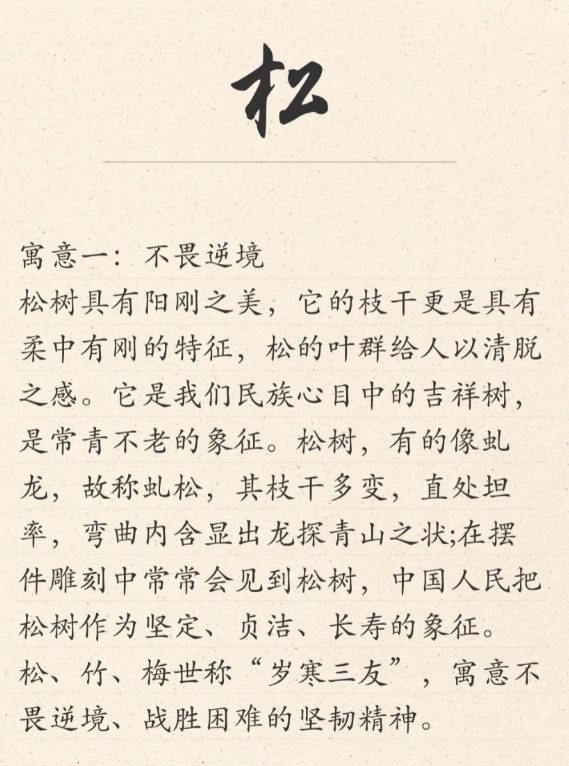 松
寓意一：不畏逆境
松树具有阳刚之美，它的枝干更是具有
柔中有刚的特征，松的叶群给人以清脱
之感。它是我们民族心目中的吉祥树，
是常青不老的象征。松树，有的像虬
龙，故称虬松，其枝干多变，直处坦
率，弯曲内含显出龙探青山之状;在摆
件雕刻中常常会见到松树，中国人民把
松树作为坚定、贞洁、长寿的象征。
松、竹、梅世称“岁寒三友”，寓意不
畏逆境、战胜困难的坚韧精神。